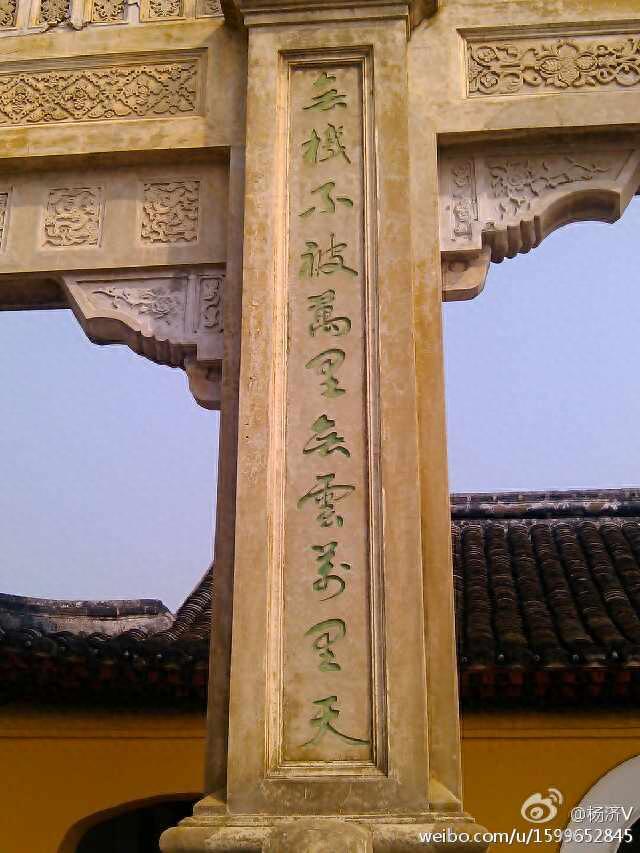 無機不被萬里無雲萬里天
@杨济V
weibo.com/u/1599652845